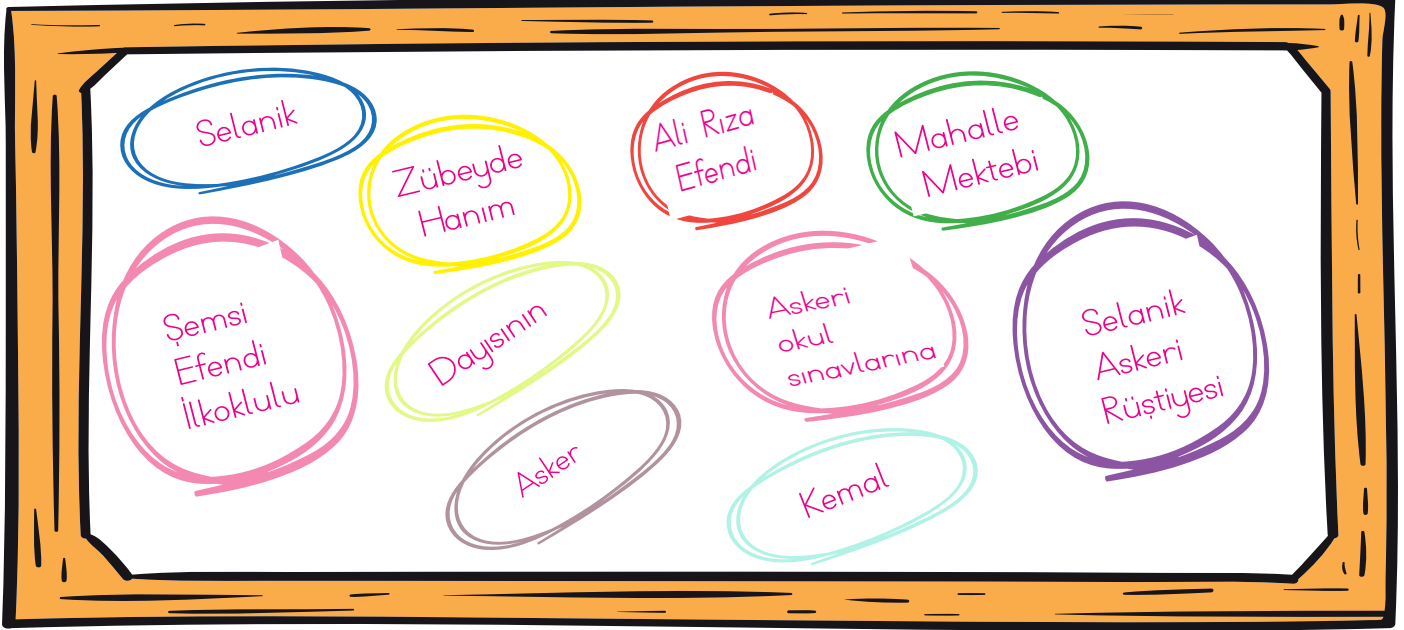 Selanik
Zübeyde
Hanım
Ali Rıza
Efendi
Mahalle
Mektebi
Şemsi
Efendi
İlkoklulu
Dayısının
Askeri
okul
sınavlarına
Selanik
Askeri
Rüştiyesi
Asker
Kemal